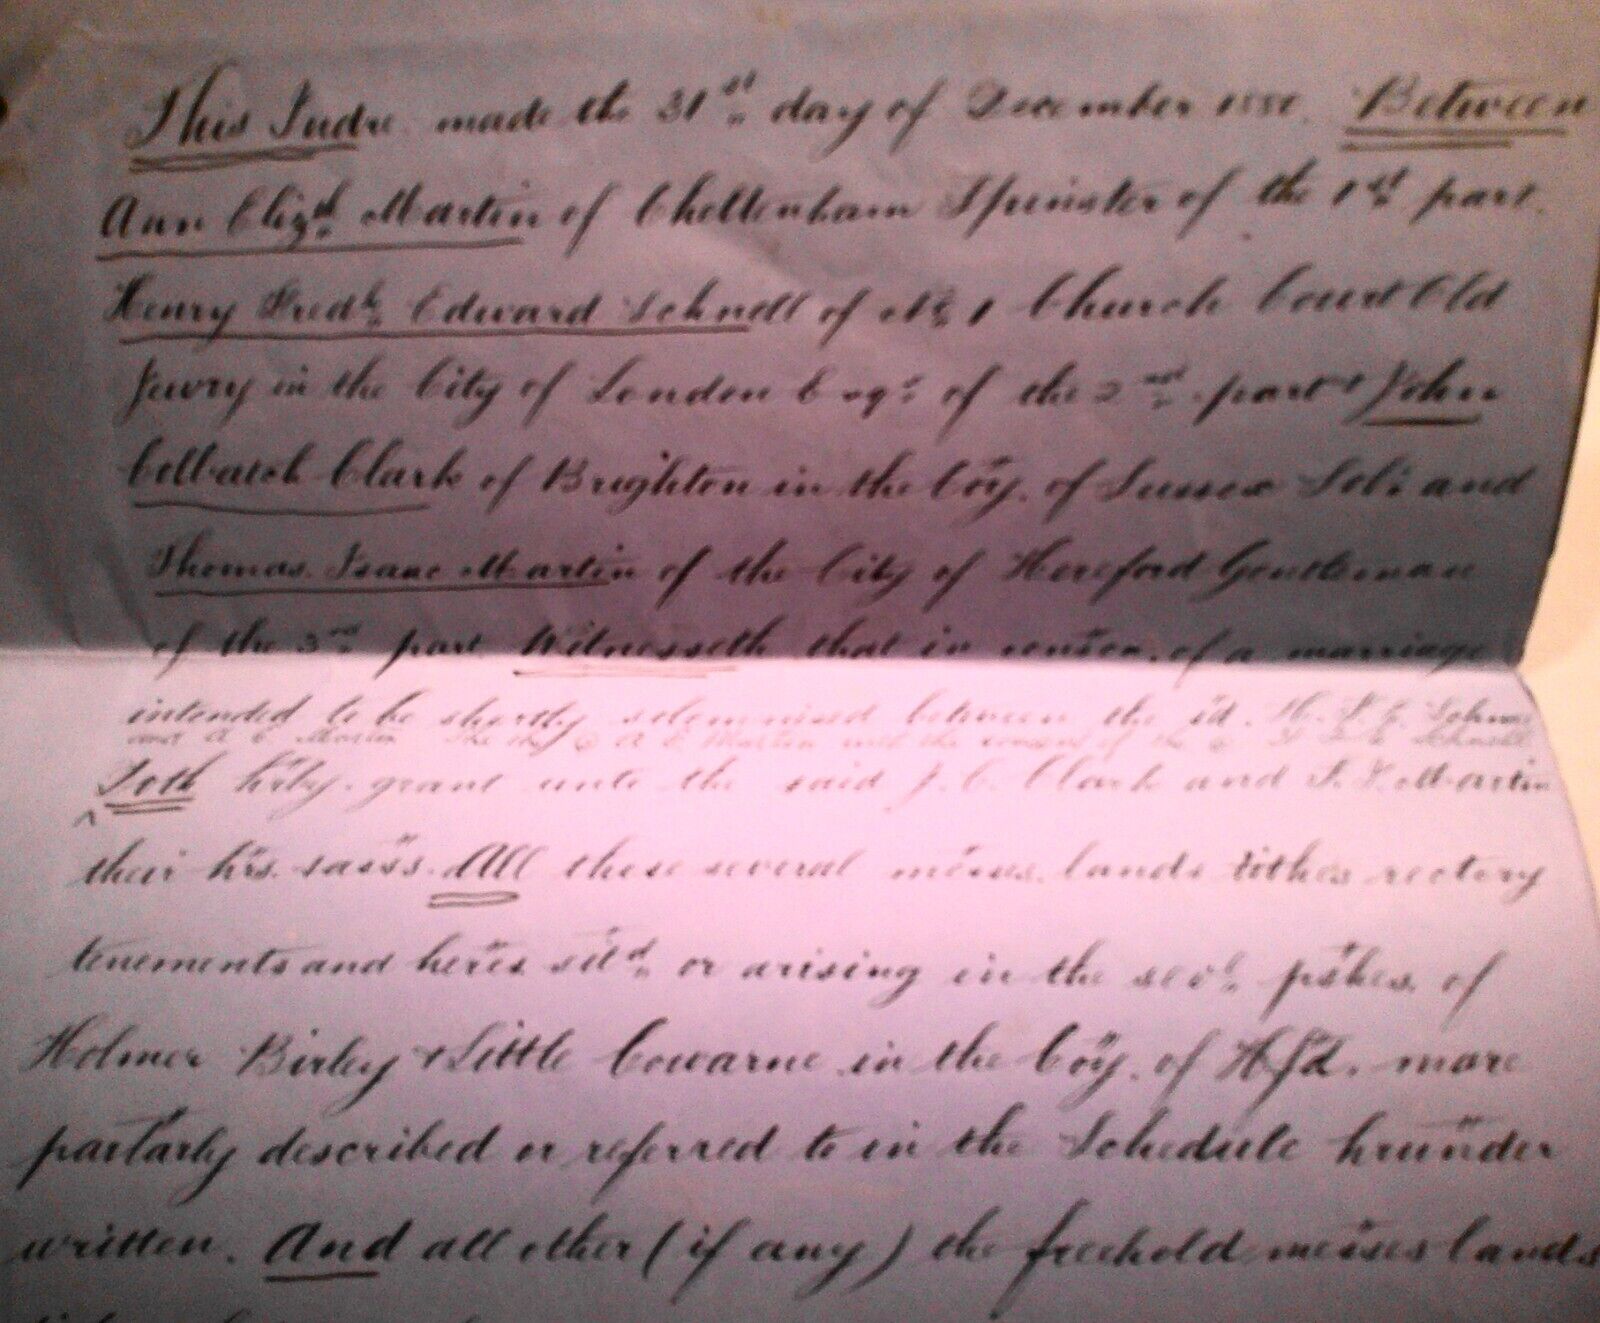 This Indre made the 31st day of December 1880. Between
Ann Elizth Martin of Cheltenham Spinster of the 1st part.
Henry Fredk Edward Schnell of No 1 Church Court Old
Jewry in the City of London Esqr of the 2nd part & John
Colbatch Clark of Brighton in the Coy. of Sussex Solr and
Thomas Isaac Martin of the City of Hereford Gentleman
of the 3rd part Witnesseth that in conson. of a marriage
intended to be shortly solemnised between the sd. H. F. E. Schnell
and A E Martin She the sd A E Martin with the consent of the sd H F E Schnell
Doth hrby. grant unto the said J. C. Clark and T. I. Martin
their hrs. & asss. All those several messes. lands tithes rectory
tenements and heres sitd or arising in the sevl pshes. of
Holmer Birley & Little Cowarne in the Coy. of Hfd. more
partarly described or referred to in the Schedule hrunder
written. And all other (if any) the freehold messes lands